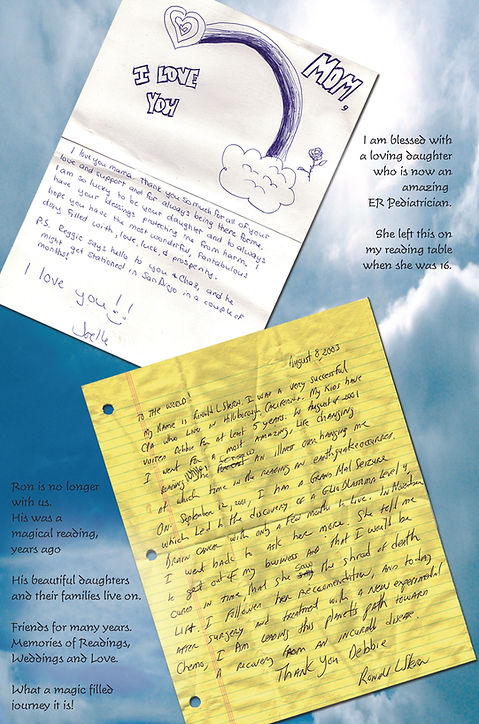 MOM,
I LOVE
YOU
I love you mama. Thank you so much for all of your
love and support and for always being there for me.
I am so lucky to be your daughter and to always
have your blessings protecting me from harm. I
hope you have the most wonderful, fantabulous
day, filled with, love, luck, & prosperity.
P.S. Reggie says hello to you & Chaz, and he
might get stationed in San Diego in a couple of
months!
I love you!!
Joelle
I am blessed with
a loving daughter
who is now an
amazing
ER Pediatrician.
She left this on
my reading table
when she was 16.
August 8, 2003
TO THE WORLD!
My Name is Ronald L. Stern. I was a very successful
CPA who lived in Hillsborough California. My kids have
visited Debbie for at least 5 years. In August of 2001
I went for a most amazing, life changing
reading. She an illness overhanging me
at which time in the reading an earthquake occurred.
On September 12, 2001, I had a Grand Mal Seizure
which led to the discovery of a Glioblastoma Level 4,
Brain cancer with only a few months to live. In November
I went back to ask her more. She told me
to get out of my business and that I would be
cured in time that she saw the shroud of death
lift. I followed her reccomendation, and today
after surgery and treated with a new experimental
Chemo, I am leading this planets path toward
a recovery from an incurable disease.
Thank you Debbie
Ronald L Stern
Ron is no longer
with us.
His was a
magical reading,
years ago
His beautiful daughters
and their families live on.
Friends for many years.
Memories of Readings,
Weddings and Love.
What a magic filled
journey it is!